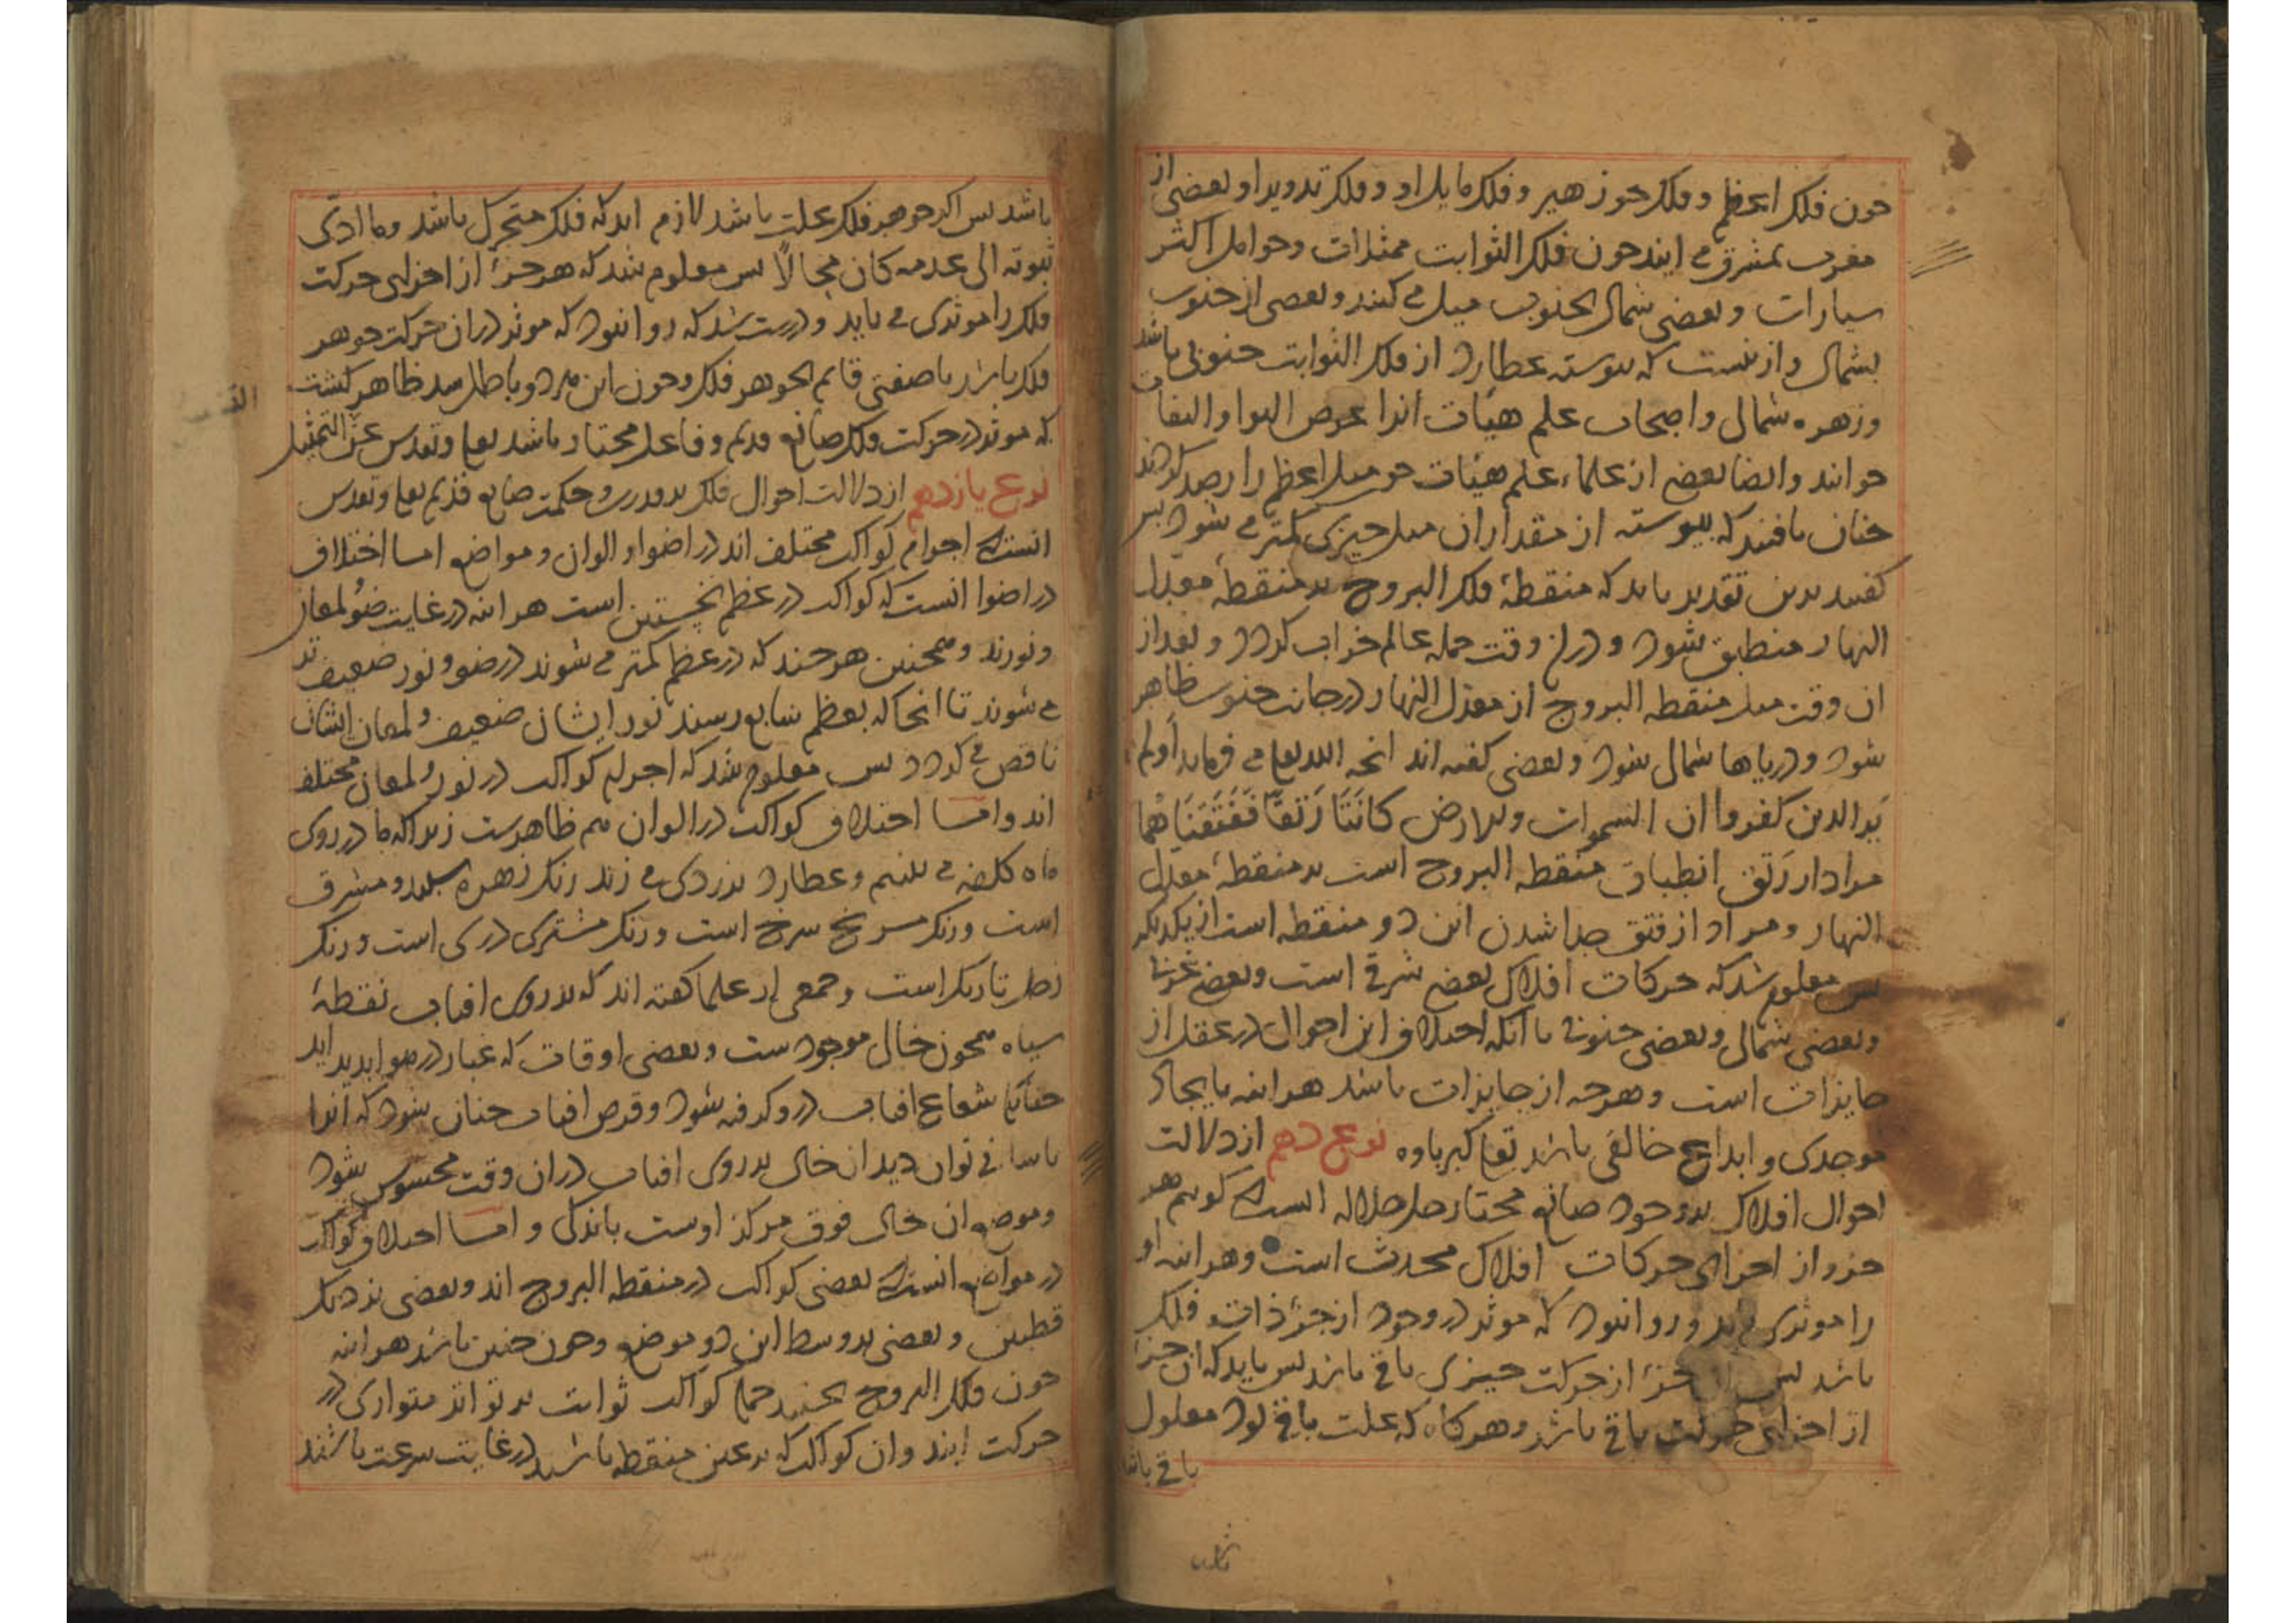 چون فلک اعظم و فلک جوزهیر و فلک مایل او و فلک تدویر او و بعضی از
مغرب بمشرق می آیند چون فلک الثوابت ممثلات و حوامل اکثر
سیارات و بعضی بشمال بجنوب میل می کنند و بعضی از جنوب
بشمال و ازینست که پیوسته عطارد از فلک الثوابت جنوبی باشد
و زهره شمالی و اصحاب علم هیئات آنرا عرض
خوانند و ایضا بعضی از علماء علم هیئات چون میل اعظم را رصد کردند
چنان یافتند که پیوسته از مقدار آن میل چیزی کمتر می شود پس
گفتند بدین تقدیر باید که منقطهٔ فلک البروج بر منقطهٔ معدل
النهار منطبق شود و در آن وقت جمله عالم خراب گردد و بعد از
آن وقت میل منقطه البروج از معدل النهار در جانب جنوب ظاهر
شود و دریاها شمالی شود و بعضی گفته اند آنچه الله تعالی می فرماید أولم
یَر الذین کفروا ان السموات والارض کانَتَا رَتقاً فَفَتَقنَاهُما
مراد از رَتق انطباق منقطه البروج است بر منقطهٔ معدل
النهار و مراد از فتق جدا شدن این دو منقطه است از یکدیگر
پس معلوم شد که حرکات افلاک بعضی شرقی است و بعضی غربی
و بعضی شمالی و بعضی جنوبی با آنکه اختلاف این احوال در عقل از
جایزات است و هرچه از جایزات باشد هراینه بایجاد
موجدی و ابداع خالقی باشد تعالی کبریاوه نوع دهم از دلالت
احوال افلاک بر وجود صانع مختار جل جلاله آنست که گویم هر
جزو از اجزای حرکات افلاک محدث است و هراینه او
را موثری باید و روا نبود که موثر در وجود آن جزء ذات فلک
باشد پس جزء از حرکت چیزی باقی باشد پس باید که آن جزء
از اجزای حرکت باقی باشد و هرگاه که علت باقی بود معلول
باقی باشد
باشد پس اگر جوهر فلک علت باشد لازم آید که فلک متحرک باشد و ما ادّی
ثبوته الی عدمه کان مجالاً پس معلوم شد که هر جزء از اجزای حرکت
فلک را موثری می باید و درست شد که روا نبود که موثر در آن حرکت جوهر
فلک باشد یا صفتی قایم بجوهر فلک و چون این هردو باطل شد ظاهر گشت
که موثر در حرکت فلک صانع قدیم و فاعل مختار باشد تعالی و تقدس عن التمثیل
نوع یازدهم از دلالت احوال فلک بر قدرت و حکمت صانع قدیم تعالی و تقدس
آنست که اجرام کواکب مختلف اند در اضوا و الوان و مواضع امسا اختلاف
در اضوا آنست که کواکب در عظم نخستین است هراینه در غایت ضوُ لمعان
و نورند و همچنین هرچند که در عظم کمتر می شوند در ضو و نور ضعیف تر
می شوند تا آنجا که بعظم سابع رسند نور ایشان ضعیف و لمعان ایشان
ناقص می گردد پس معلوم شد که اجرام کواکب در نور و لمعان مختلف
اند وامسا اختلاف کواکب در الوان هم ظاهرست زیرا که ما در روی
ماه کلفه می بینیم و عطارد بزردی می زند رنگ زهره سپید و مشرق
است و رنگ مریخ سرخ است و رنگ مشتری دری است و رنگ
زحل تاریک است و جمعی از علما گفته اند که بر روی آفتاب نقطهٔ
سیاه همچون خالی موجودست و بعضی اوقات که غبار در هوا پدید آید
چنانکه شعاع آفتاب درو گرفته شود و قرص آفتاب چنان شود که آنرا
باسانی توان دید آن خال بر روی آفتاب در آن وقت محسوس شود
و موضع آن خال فوق مرکز اوست باندکی و امسا اختلاف کواکب
در مواضع آنست که بعضی کواکب در منقطه البروج اند و بعضی نزدیک
قطبین و بعضی بر وسط این دو موضع و چون چنین باشد هراینه
چون فلک البروج بجنبد جمله کواکب ثوابت بر تواتر متواری در
حرکت آیند و آن کواکب که بر عین منقطه باشند در غایت سرعت باشند